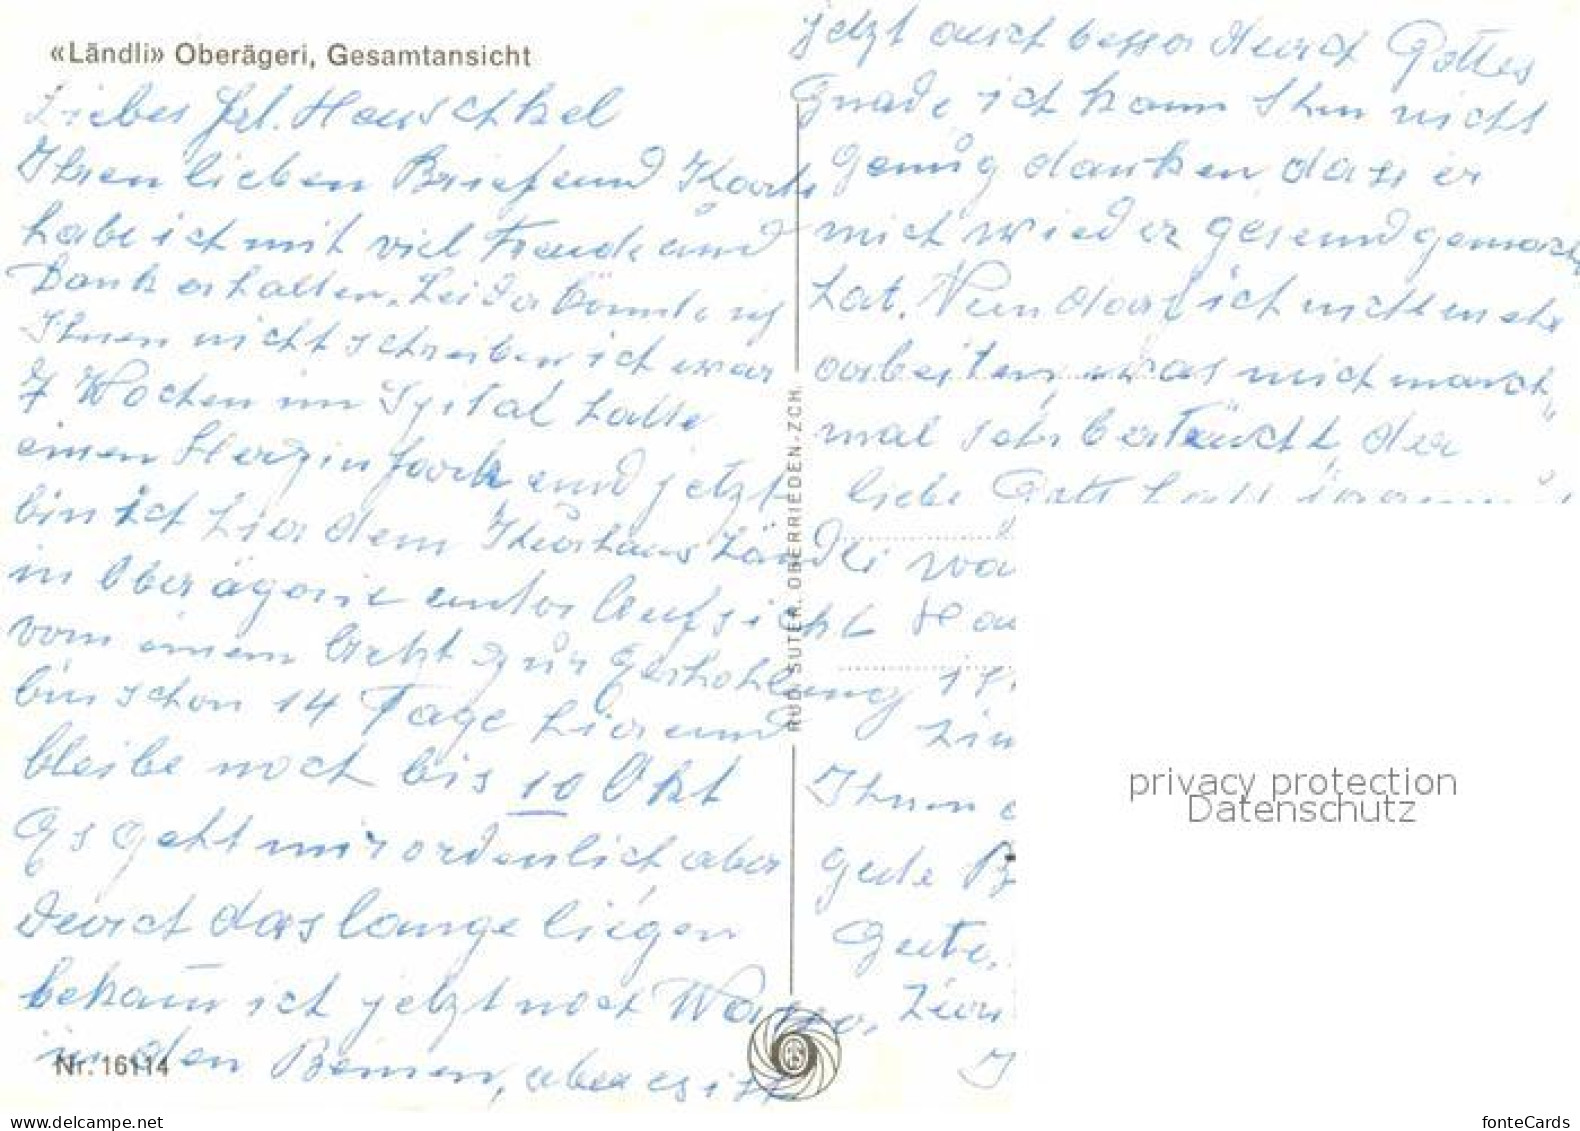 «Ländli» Oberägeri, Gesamtansicht
Liebes Frl. Hauschkel
Ihren lieben Brief und Karte
habe ich mit viel Freude und
Dank erhalten. Leider konnte ich
Ihnen nicht schreiben ich war
7 Wochen im Spital hatte
einen Herzinfarkt und jetzt
bin ich hier dem Kurhaus Ländli
in Oberägerie unter Aufsicht
vom einem Arzt zur Gerhohlung
bin schon 14 Tage hier und
bleibe noch bis 10 Okt
Es geht mir ordenlich aber
durch das lange liegen
bekam ich jetzt noch Wasser
in den Beinen, aber es ist
Nr. 16114
RUD. SUTER, OBERRIEDEN-ZCH.
jetzt auch besser durch Gottes
Gnade ich kann Ihm nicht
genug danken, dass er
mich wieder gesund gemacht
hat. Nun darf ich nicht mehr
arbeiten, was mich manch"
mal sehr bertückt, der
liebe Gott hatt
wa
Ha
Ihnen
gute B
Gute.
privacy protection
Datenschutz
fonteCards
www.delcampe.net